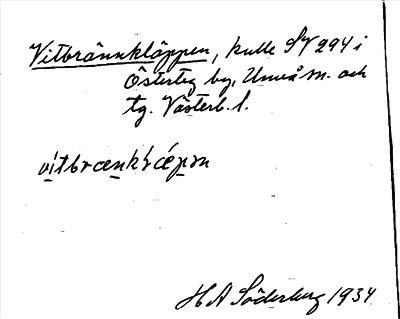 Vitbrännkläppen, kulle SV 294 i
Österteg by, Umeå sn. och
tg. Västerb. l.
H A Söderberg 1934